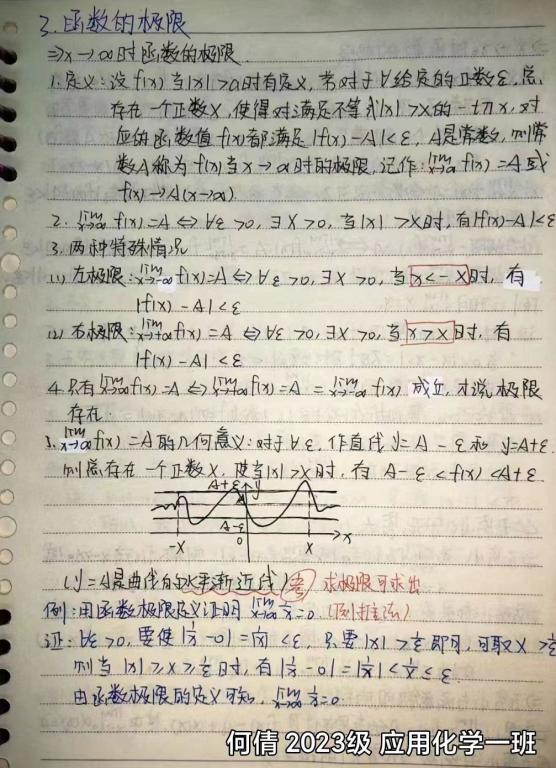 3. 函数的极限
⇒x→∞时函数的极限.
1. 定义: 设 f(x) 当|x|>a时有定义, 若对于∀给定的正数ε, 总
存在一个正数X, 使得对满足不等式|x|>X的一切x, 对
应的函数值 f(x)都满足 |f(x)-A|<ε, A是常数, 则常
数A称为f(x)当x→∞时的极限, 记作: lim x→∞ f(x)=A或
f(x)→A(x→∞)
2. lim x→∞ f(x)=A⇔∀ε>0, ∃X>0, 当|x|>X时, 有|f(x)-A|<ε
3. 两种特殊情况
(1) 左极限: lim x→-∞ f(x)=A⇔∀ε>0, ∃X>0, 当x<-X时, 有
|f(x)-A|<ε
(2) 右极限: lim x→+∞ f(x)=A⇔∀ε>0, ∃X>0, 当x>X时, 有
|f(x)-A|<ε
4. 只有 lim x→∞ f(x)=A⇔ lim x→+∞ f(x)=A= lim x→-∞ f(x) 成立, 才说极限
存在.
5. lim x→∞ f(x)=A的几何意义: 对于∀ε, 作直线 y=A-ε和 y=A+ε.
则总存在一个正数X, 使当|x|>X时, 有 A-ε<f(x)<A+ε.
A+ε y
A
A-ε
-X 0 X x
(y=A是曲线的水平渐近线) 考 求极限可求出
例: 用函数极限定义证明 lim x→∞ 1/x=0. (倒推法)
证: ∀ε>0, 要使|1/x-0|=|1/x|<ε, 只要|x|>1/ε即可, 可取X>1/ε
则当|x|>X>1/ε时, 有|1/x-0|=|1/x|<1/X≤ε.
由函数极限的定义可知, lim x→∞ 1/x=0.
何倩 2023级 应用化学一班